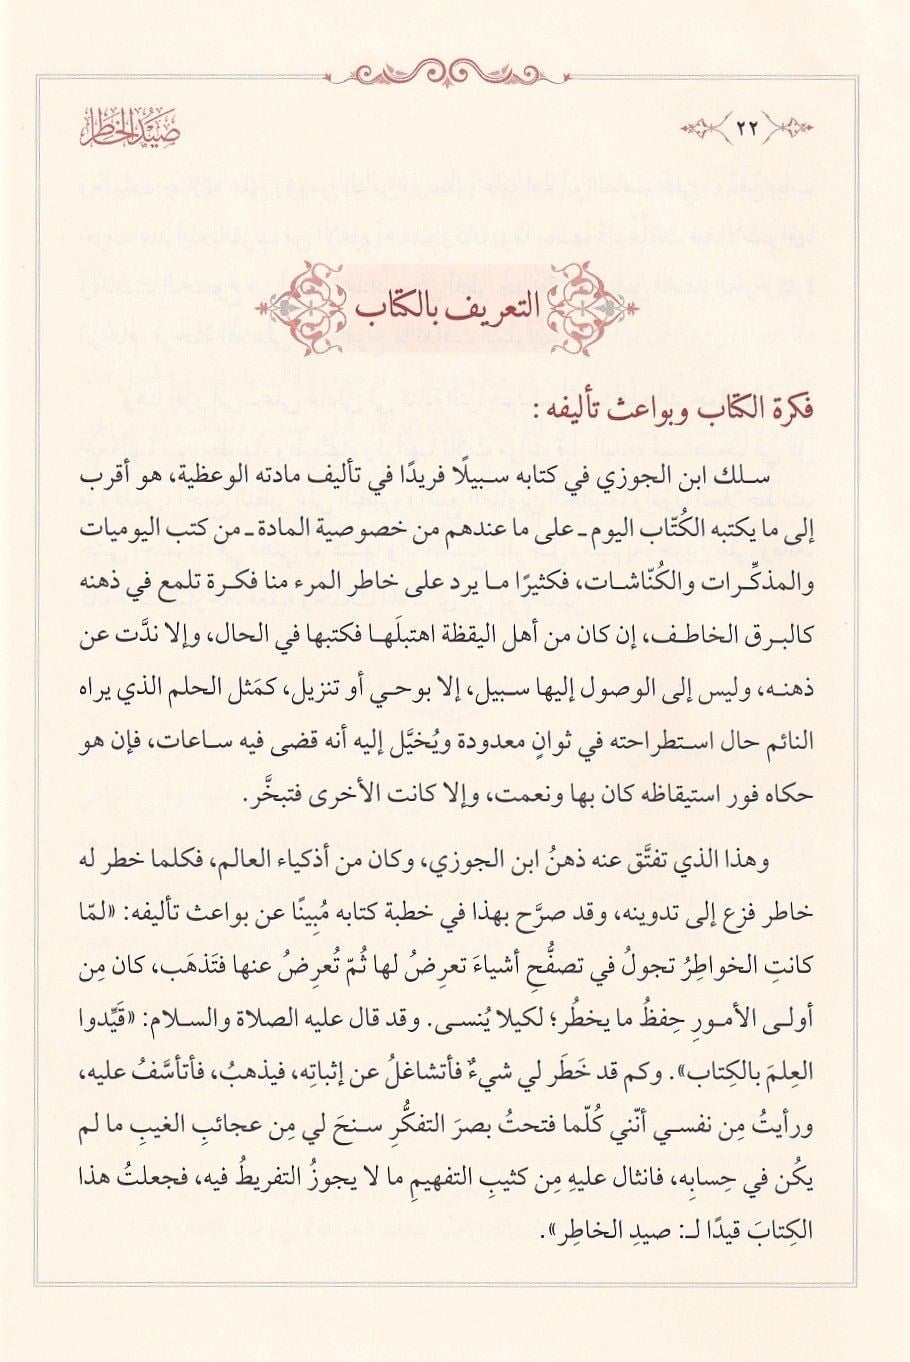 ٢٢
صيد الخاطر
التعريف بالكتاب
فكرة الكتاب وبواعث تأليفه :
سلك ابن الجوزي في كتابه سبيلًا فريدًا في تأليف مادته الوعظية، هو أقرب
إلى ما يكتبه الكُتّاب اليوم ـ على ما عندهم من خصوصية المادة ـ من كتب اليوميات
والمذكِّرات والكُنّاشات، فكثيرًا ما يرد على خاطر المرء منا فكرة تلمع في ذهنه
كالبرق الخاطف، إن كان من أهل اليقظة اهتبلَها فكتبها في الحال، وإلا ندَّت عن
ذهنه، وليس إلى الوصول إليها سبيل، إلا بوحي أو تنزيل، كمَثل الحلم الذي يراه
النائم حال استطراحته في ثوانٍ معدودة ويُخيَّل إليه أنه قضى فيه ساعات، فإن هو
حكاه فور استيقاظه كان بها ونعمت، وإلا كانت الأخرى فتبخَّر.
وهذا الذي تفتَّق عنه ذهنُ ابن الجوزي، وكان من أذكياء العالم، فكلما خطر له
خاطر فزع إلى تدوينه، وقد صرَّح بهذا في خطبة كتابه مُبِينًا عن بواعث تأليفه: «لمّا
كانتِ الخواطِرُ تجولُ في تصفُّحِ أشياءَ تعرِضُ لها ثُمّ تُعرِضُ عنها فتَذهَب، كان مِن
أولى الأمورِ حِفظُ ما يخطُر؛ لكيلا يُنسى. وقد قال عليه الصلاة والسلام: «قَيِّدوا
العِلمَ بالكِتاب». وكم قد خَطَر لي شيءٌ فأتشاغلُ عن إثباتِه، فيذهبُ، فأتأسَّفُ عليه،
ورأيتُ مِن نفسي أنّني كُلّما فتحتُ بصرَ التفكُّرِ سنحَ لي مِن عجائبِ الغيبِ ما لم
يكُن في حِسابِه، فانثال عليهِ مِن كثيبِ التفهيمِ ما لا يجوزُ التفريطُ فيه، فجعلتُ هذا
الكِتابَ قيدًا لـ: صيدِ الخاطِر».